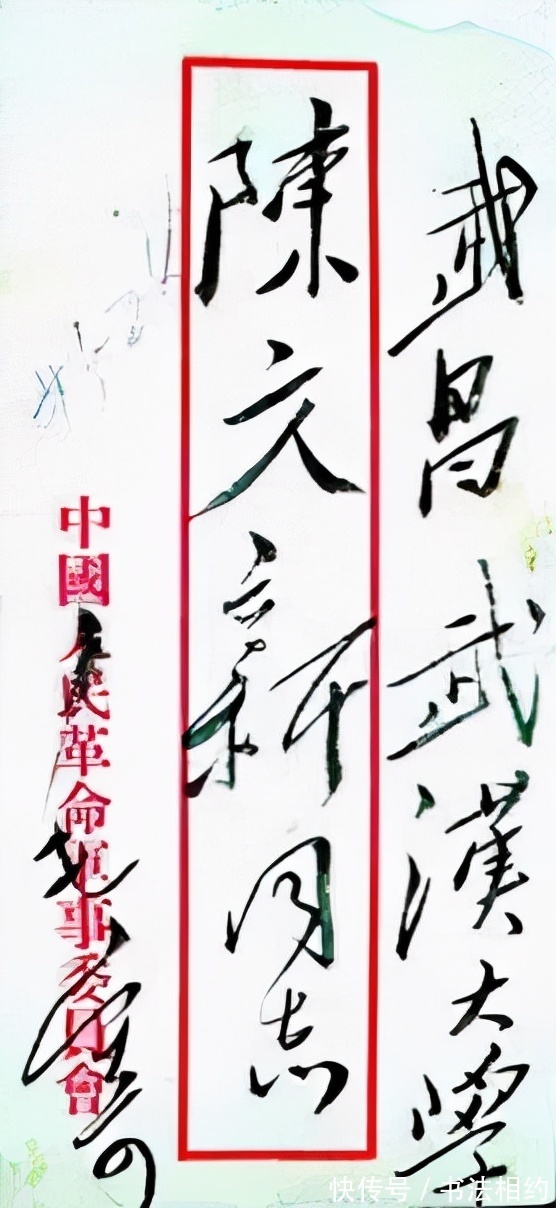 武昌武漢大學
陳文新同志
中國人民革命軍事委員會
快传号 / 书法相约